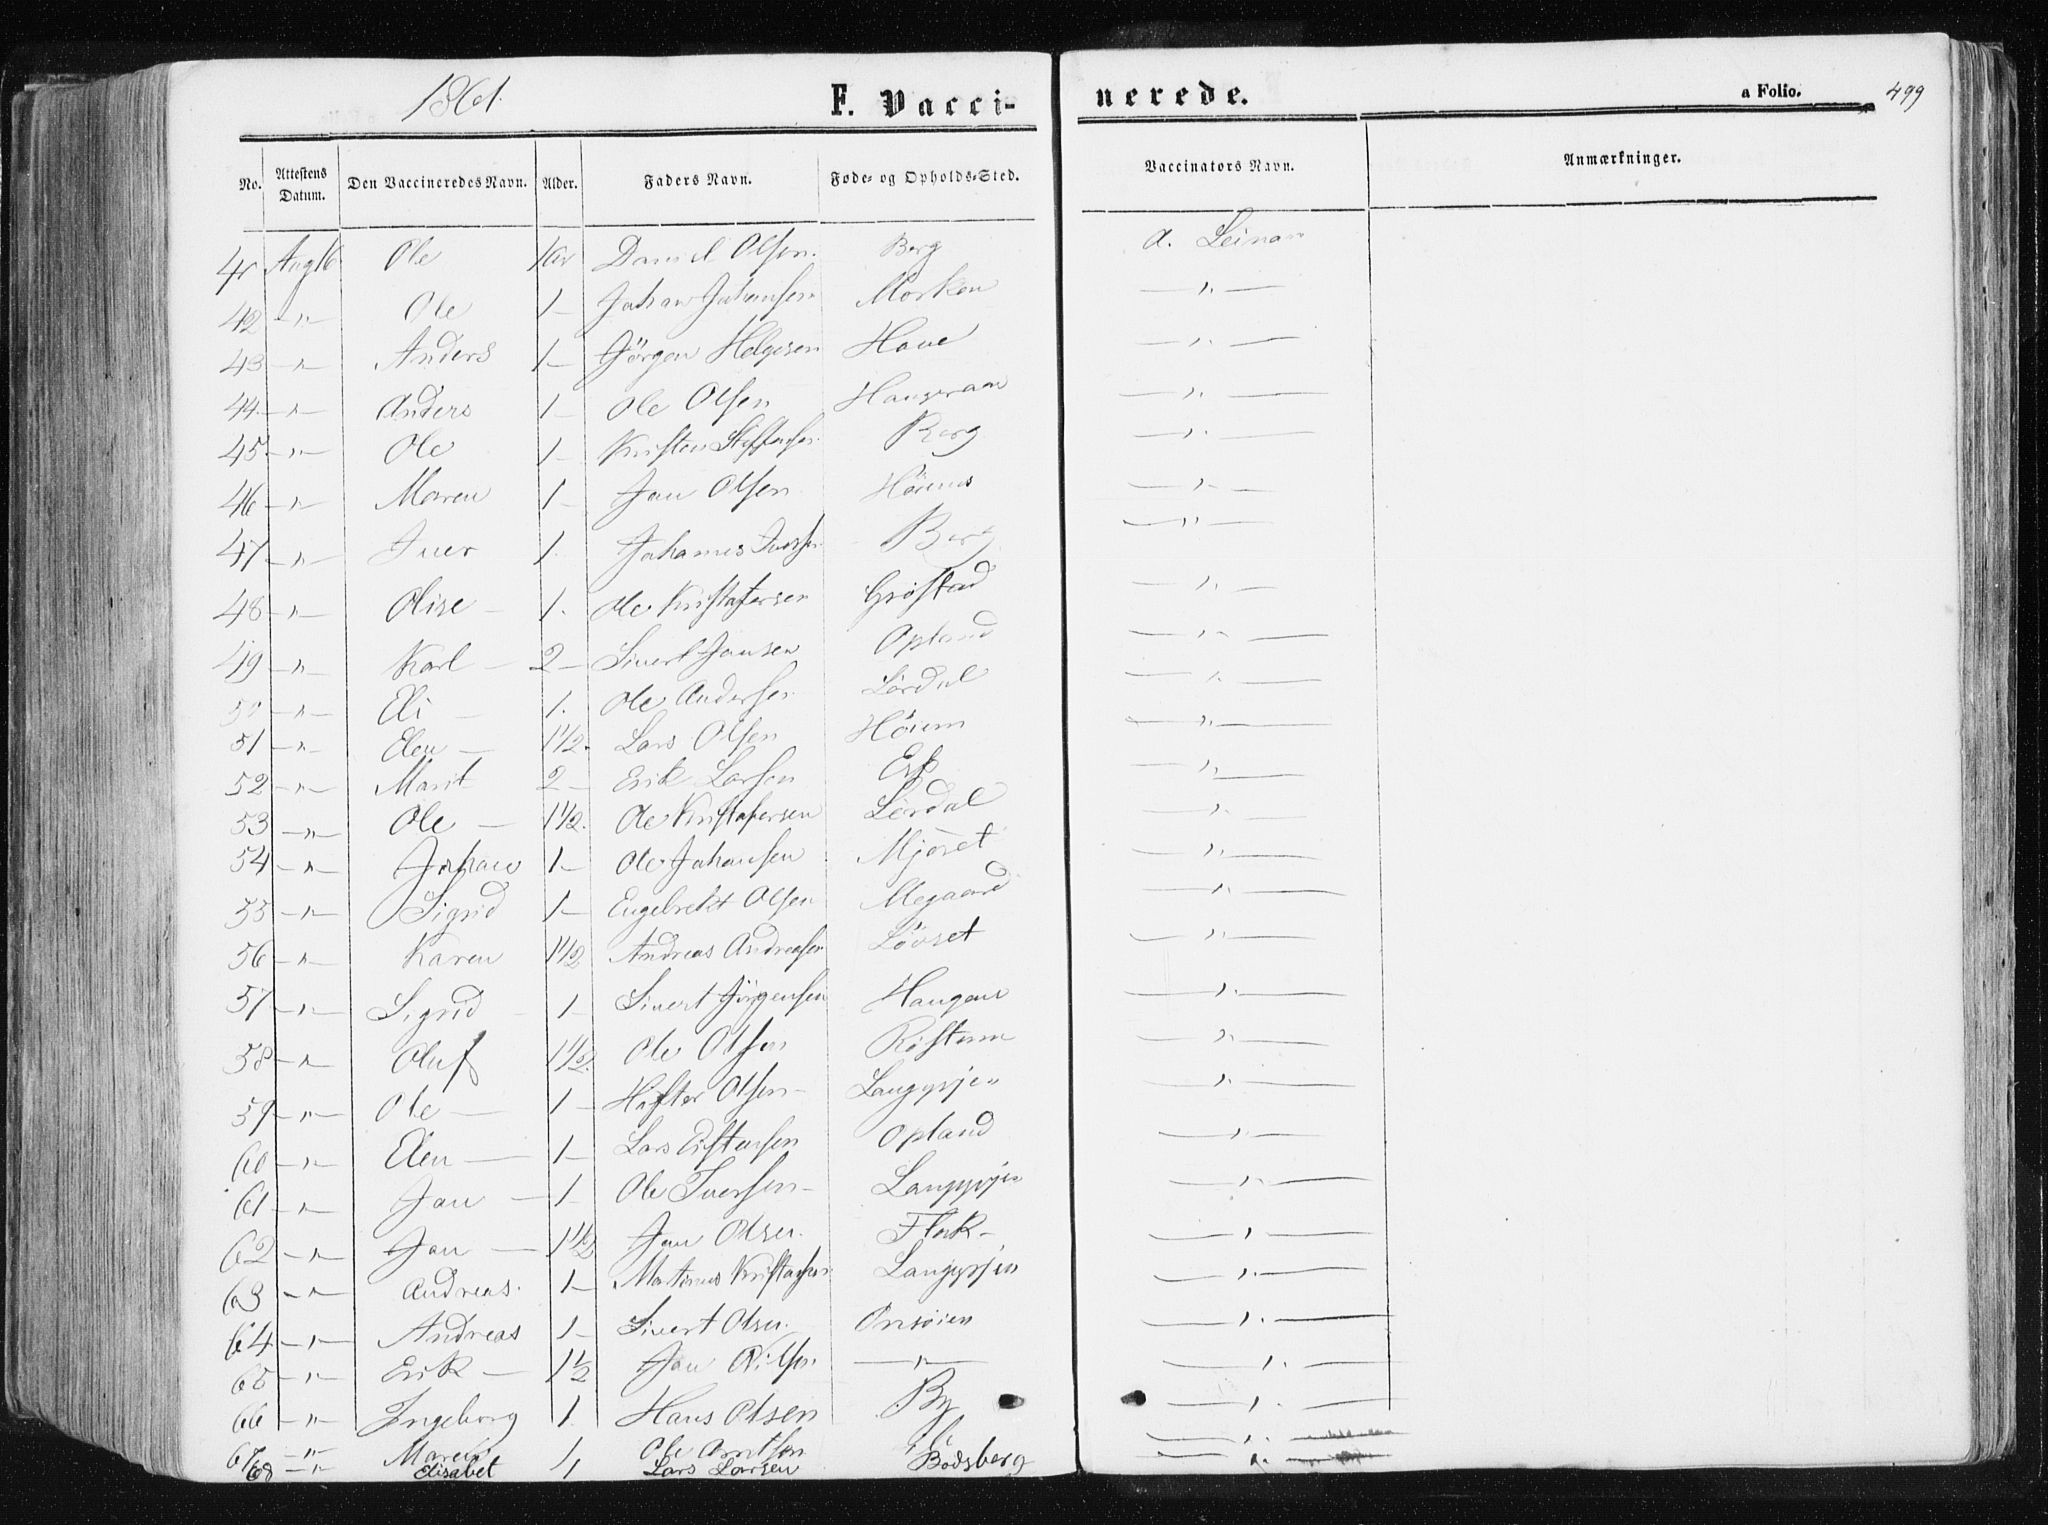 1861.
F. Vacci-
nerede.
a Folio.
499
No. Attestens Datum. Den Vaccineredes Navn. Alder. Faders Navn. Føde- og Opholds-Sted. Vaccinators Navn. Anmærkninger.
41 Aug 16 Ole 1 Aar Daniel Olsen. Berg a. Leinan
42 -"- Ole 1- Johan Johansen Morken -"-
43 -"- Anders 1- Jörgen Helgesen Hove -"-
44 -"- Anders 1- Ole Olsen -"-
45 -"- Ole 1- Kristen Steffensen Berg -"-
46 -"- Maren 1- Jon Olsen -"-
47 -"- Iver 1. Johannes Iversen Berg -"-
48 -"- Olise - 1. Ole Kristofersen Gröstad -"-
49 -"- Karl - 2- Sivert Jonsen Opland -"-
50 -"- Eli - 1. Ole Andersen Lördal -"-
51 -"- Elen - 1 1/2. Lars Olsen Höiem -"-
52 -"- Marit 2- Erik Larsen Esp -"-
53 -"- Ole - 1 1/2. Ole Kristofersen Lördal -"-
54 -"- Johan 1- Ole Johansen Mjöset -"-
55 -"- Sigrid 1- Engebrekt Olsen Megaard -"-
56 -"- Karen 1 1/2 Andreas Andreasen Lövset -"-
57 -"- Sigrid - 1- Sivert Jörgensen Haugen -"-
58 -"- Oluf 1 1/2. Ole Olsen Röstum -"-
59 -"- Ole - 1- Hafter Olsen - Langörjen -"-
60 -"- Elen - 1- Lars Estensen Opland -"-
61 -"- Jon - 1- Ole Iversen - Langörjen -"-
62 -"- Jon - 1 1/2 Jon Olsen. Flåk - -"-
63 -"- Andreas. 1- Martinus Kristofersen Langörjen -"-
64 -"- Andreas 1- Sivert Olsen. Onsöien -"-
65 -"- Erik - 1 1/2 Jon Nilsen -"- -"-
66 -"- Ingeborg 1. Hans Olsen By -"-
67 -"- Maren 1 Ole Arntsen -"-
68 -"- Elisabet 1 Lars Larsen Bodsberg -"-